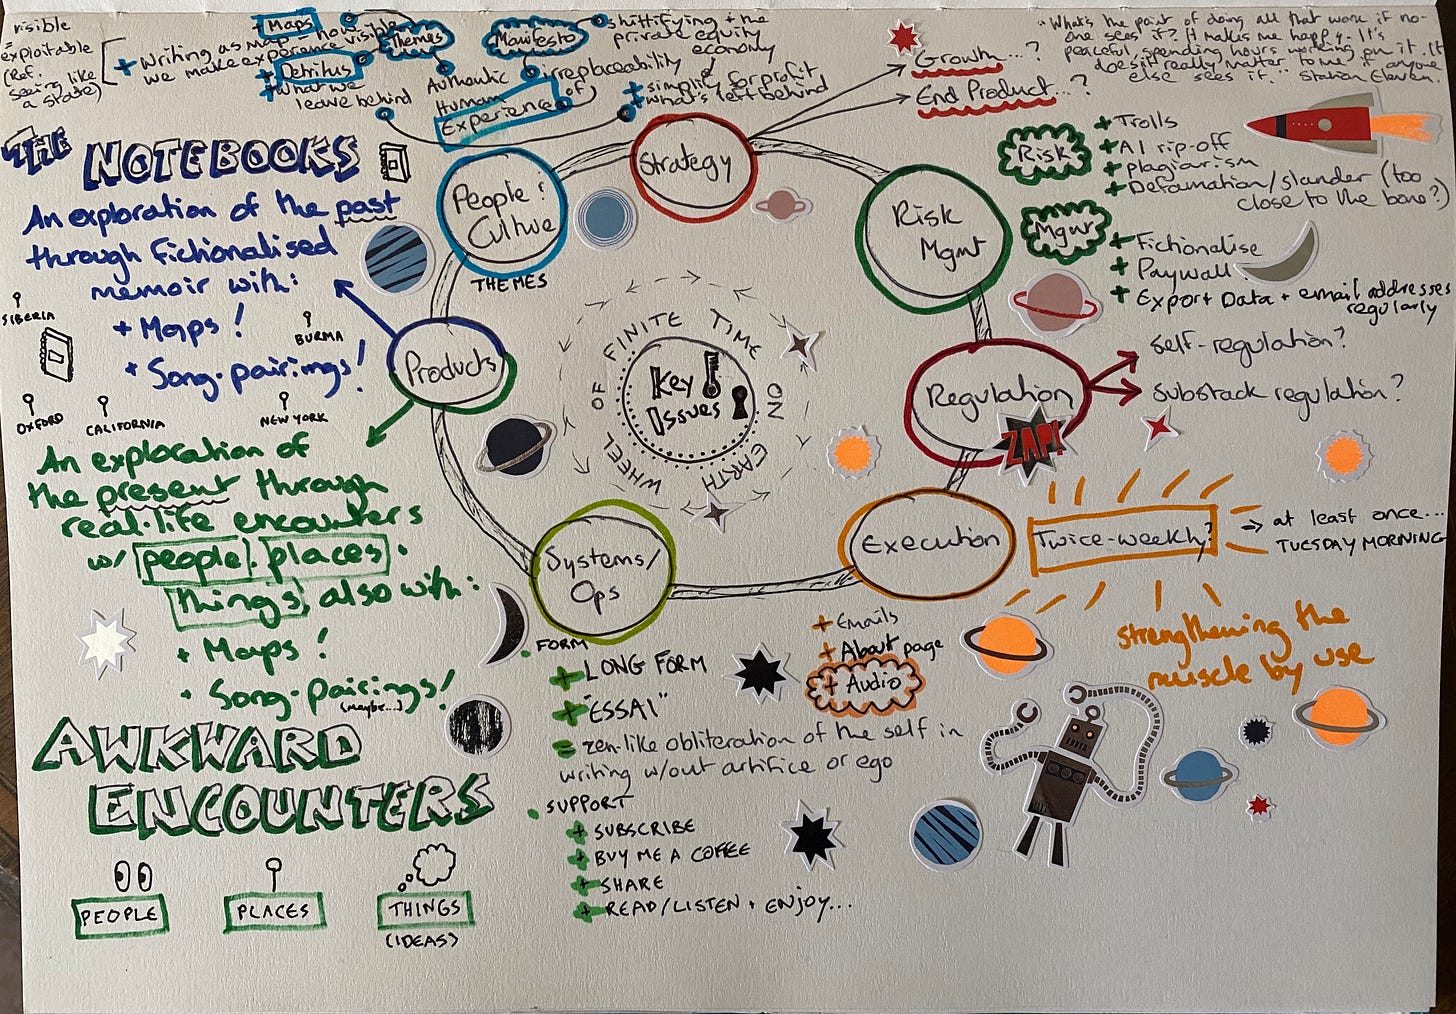 visible
= exploitable
(ref.
seeing like
a state)
+ Writing as map - how
we make experience visible
+ Maps
+ Detritus
+ what we
leave behind
Themes
Authentic
Human
Experience
Manifesto
irreplaceability
of
shittifying + the
private equity
economy
+ simplify for profit
+ what's left behind
Growth...?
End Product...?
"What's the point of doing all that work if no-
one sees it? It makes me happy. It's
peaceful, spending hours working on it. It
doesn't really matter to me if anyone
else sees it." Station Eleven.
THE NOTEBOOKS
An exploration of the past
through fictionalised
memoir with:
+ Maps!
+ Song-pairings!
SIBERIA
BURMA
OXFORD
CALIFORNIA
NEW YORK
An exploration of
the present through
real-life encounters
w/ people, places,
things, also with:
+ Maps!
+ Song-pairings!
(maybe...)
AWKWARD
ENCOUNTERS
PEOPLE
PLACES
THINGS
(IDEAS)
Strategy
People &
Culture
THEMES
Products
Systems/
Ops
Execution
Regulation
Risk
Mgmt
Key
Issues
WHEEL OF FINITE TIME ON EARTH
Risk
+ Trolls
+ AI rip-off
+ plagiarism
+ Defamation/slander (too
close to the bone?)
Mgmt
+ Fictionalise
+ Paywall
+ Export Data + email addresses
regularly
self-regulation?
substack regulation?
ZAP!
Twice-weekly?
→ at least once...
TUESDAY MORNING
strengthening the
muscle by use
+ Emails
+ About page
+ Audio
• FORM
+ LONG FORM
+ "ESSAI"
= zen-like obliteration of the self in
writing w/out artifice or ego
• SUPPORT
+ SUBSCRIBE
+ BUY ME A COFFEE
+ SHARE
+ READ/LISTEN + ENJOY...